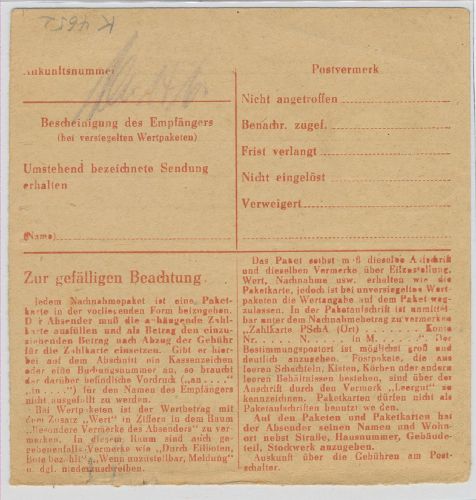 K 4652
Ankunftsnummer
Postvermerk
Nicht angetroffen
Bescheinigung des Empfängers
(bei versiegelten Wertpaketen)
Benachr. zugef.
Umstehend bezeichnete Sendung
erhalten
Frist verlangt
Nicht eingelöst
Verweigert
(Name)
Zur gefälligen Beachtung
Jedem Nachnahmepaket ist eine Paket-
karte in der vorliegenden Form beizugeben.
D r Absender muß die a hängende Zahl-
karte ausfüllen und als Betrag den einzu-
ziehenden Betrag nach Abzug der Gebühr
für die Zahlkarte einsetzen. Gibt er hier-
bei auf dem Abschnitt ein Kassenzeichen
oder eine Buchungsnummer an, so braucht
der darüber befindliche Vordruck („an . . . .“
in . . . .“) für den Namen des Empfängers
nicht ausgefüllt zu werden.
Bei Wertpaketen ist der Wertbetrag mit
dem Zusatz „Wert“ in Ziffern in dem Raum
„Besondere Vermerke des Absenders“ zu ver-
merken. In diesem Raum sind auch gege-
benenfalls Vermerke wie „Durch Eilboten,
Bote bezahlt“, „Wenn unzustellbar, Meldung“
u. dgl. niederzuschreiben.
Das Paket selbst muß dieselbe Aufschrift
und dieselben Vermerke über Eilzustellung,
Wert, Nachnahme usw. erhalten wie die
Paketkarte, jedoch ist bei unversiegelten Wert-
paketen die Wertangabe auf dem Paket weg-
zulassen. In der Paketanschrift ist unmittel-
bar unter dem Nachnahmebetrag zu vermerken
„Zahlkarte PSchA (Ort) . . . . . Konto
Nr. . . . . N. . . . in M. . . .“ Der
Bestimmungspostort ist möglichst groß und
deutlich anzugeben. Postpakete, die aus
leeren Schachteln, Kisten, Körben oder anderen
leeren Behältnissen bestehen, sind über der
Anschrift durch den Vermerk „Leergut“ zu
kennzeichnen. Paketkarten dürfen nicht als
Paketanschriften benutzt werden.
Auf den Paketen und Paketkarten hat
der Absender seinen Namen und Wohn-
ort nebst Straße, Hausnummer, Gebäude-
teil, Stockwerk anzugeben.
Auskunft über die Gebühren am Post-
schalter.